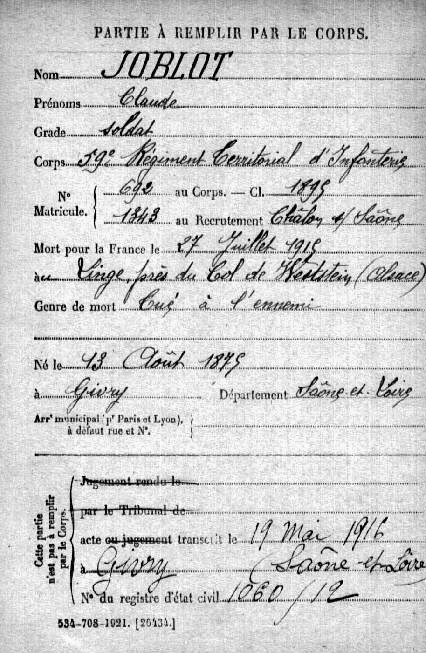 PARTIE À REMPLIR PAR LE CORPS.
Nom JOBLOT
Prénoms Claude
Grade soldat
Corps 59e Régiment Territorial d'Infanterie
N° Matricule. { 692 au Corps. — Cl. 1895
1343 au Recrutement Châlon s/ Saône
Mort pour la France le 27 Juillet 1915
au Linge, près du Col de Wettstein (Alsace)
Genre de mort Tué à l'ennemi
Né le 13 Août 1875
à Givry Département Saône-et-Loire
Arrt municipal (pr Paris et Lyon),
à défaut rue et N°.
Cette partie
n'est pas à remplir
par le Corps.
Jugement rendu le
par le Tribunal de
acte ou jugement transcrit le 19 Mai 1916
à Givry (Saône et Loire
N° du registre d'état civil 1060/12
534-708-1921. [26434.]